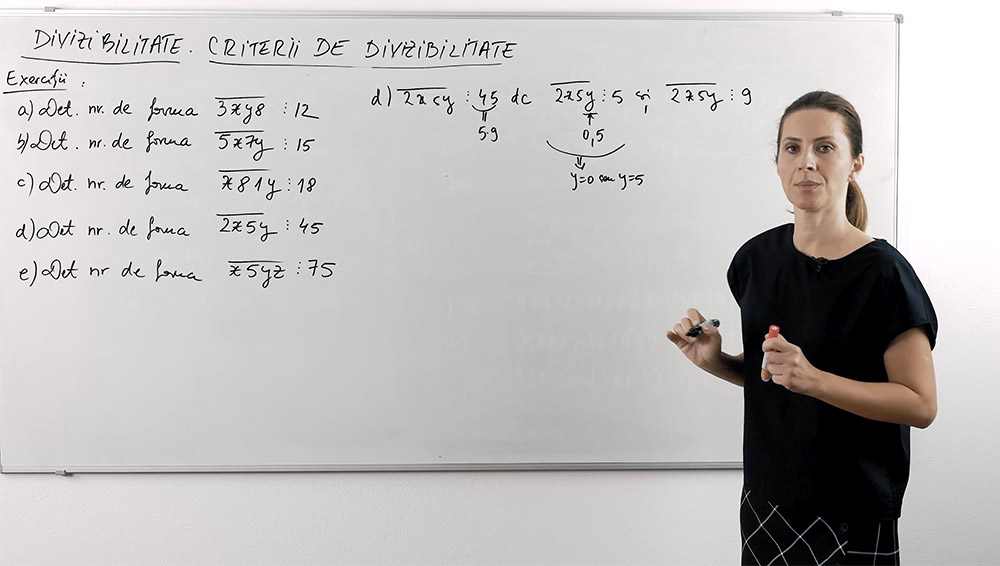 DIVIZIBILITATE. CRITERII DE DIVIZIBILITATE
Exerciții :
a) Det. nr. de forma 3xy8 ⋮ 12
b) Det. nr. de forma 5x7y ⋮ 15
c) Det. nr. de forma x81y ⋮ 18
d) Det nr. de forma 2x5y ⋮ 45
e) Det nr de forma x5yz ⋮ 75
d) 2x5y ⋮ 45 dc 2x5y ⋮ 5 și 2x5y ⋮ 9
5·9 0,5
y=0 sau y=5